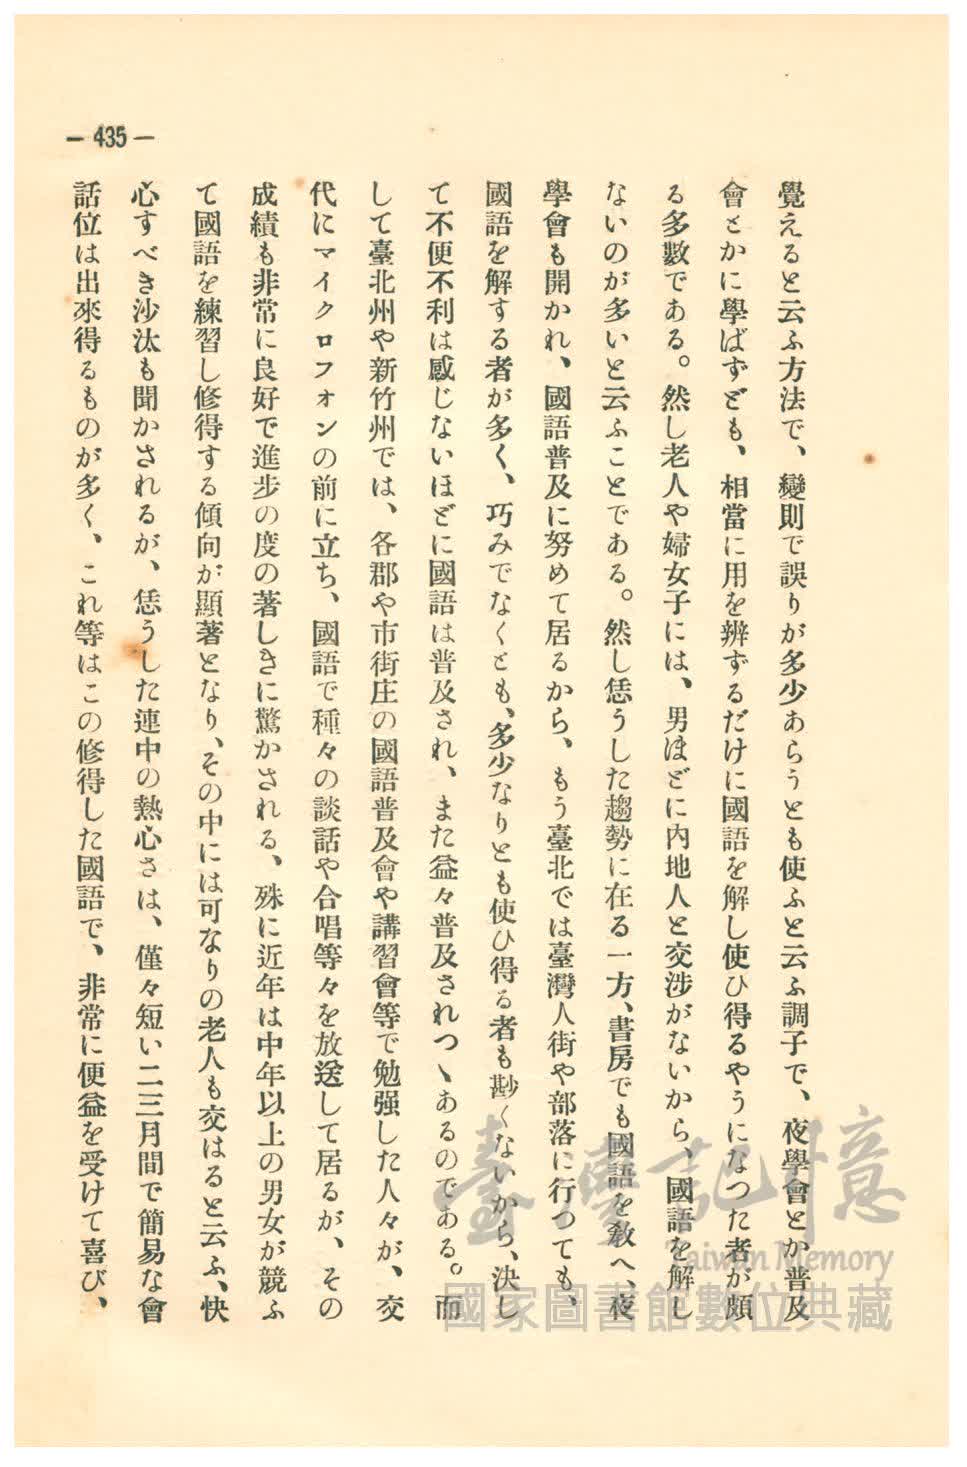 — 435 —
覺えると云ふ方法で、變則で誤りが多少あらうとも使ふと云ふ調子で、夜學會とか普及
會とかに學ばずども、相當に用を辨ずるだけに國語を解し使ひ得るやうになつた者が頗
る多數である。然し老人や婦女子には、男ほどに內地人と交涉がないから、國語を解し
ないのが多いと云ふことである。然し恁うした趨勢に在る一方、書房でも國語を敎へ、夜
學會も開かれ、國語普及に努めて居るから、もう臺北では臺灣人街や部落に行つても、
國語を解する者が多く、巧みでなくとも、多少なりとも使ひ得る者も尠くないから、決し
て不便不利は感じないほどに國語は普及され、また益々普及されつゝあるのである。而
して臺北州や新竹州では、各郡や市街庄の國語普及會や講習會等で勉强した人々が、交
代にマイクロフォンの前に立ち、國語で種々の談話や合唱等々を放送して居るが、その
成績も非常に良好で進步の度の著しきに驚かされる、殊に近年は中年以上の男女が競ふ
て國語を練習し修得する傾向が顯著となり、その中には可なりの老人も交はると云ふ、快
心すべき沙汰も聞かされるが、恁うした連中の熱心さは、僅々短い二三月間で簡易な會
話位は出來得るものが多く、これ等はこの修得した國語で、非常に便益を受けて喜び、
臺灣記憶
Taiwan Memory
國家圖書館數位典藏